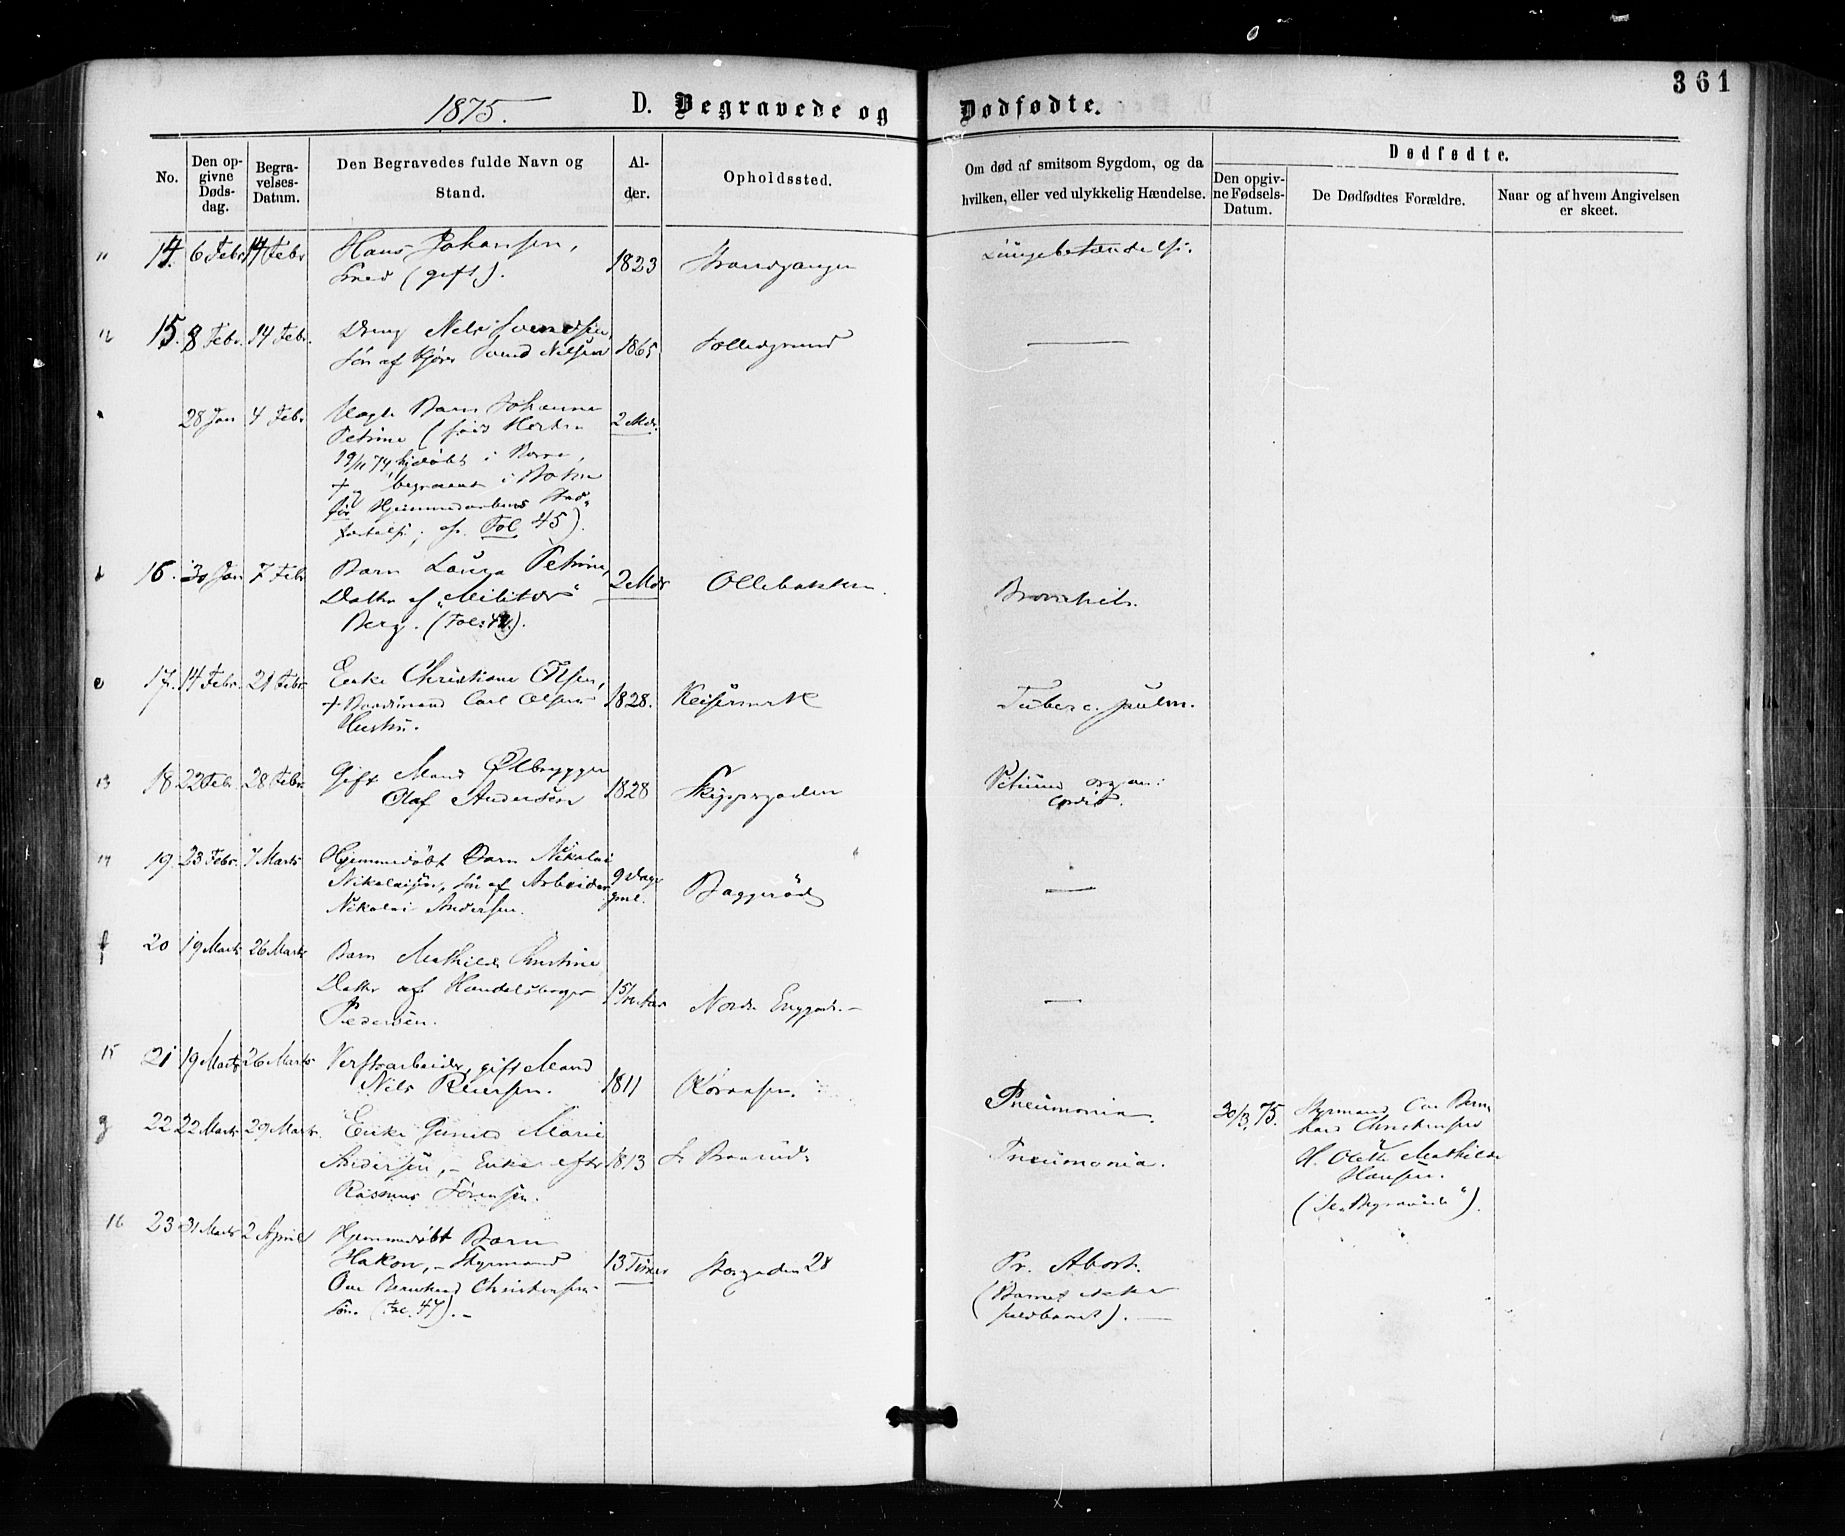 361
1875. D. Begravede og Dødfødte.
No.
Den opgivne Dødsdag.
Begravelses-Datum.
Den Begravedes fulde Navn og Stand.
Alder.
Opholdssted.
Om død af smitsom Sygdom, og da hvilken, eller ved ulykkelig Hændelse.
Dødfødte.
Den opgivne Fødsels-Datum.
De Dødfødtes Forældre.
Naar og af hvem Angivelsen er skeet.
11 14. 6 Febr 14 Febr Hans Johansen, 1823 Lungebetændelse.
(gift).
12 15. 8 Febr. 14 Febr. Dreng Nils Svendsen, 1865 —
Søn af Svend Nilsen
28 Jan 4 Febr Barn Johanna 2 Mdr.
Petrine (født Horten
19/11 74, hjdøbt i Borre,
+ begravet i
for Hjemmedaabens Stad-
fæstelse; cfr. Fol 45).
16. 30 Jan 7 Febr Barn Laura Petrine, 2 Mdr Ollebakken.
Datter af "Militær"
Berg. (Fol:).
e 17. 14 Febr. 21 Febr. Enke Christiane Olsen, 1828. Keisemark Tuberc. pulm.
+ Carl Olsens
Hustru.
13 18 22 Febr. 28 Febr. Gift Mand Ølbrygger 1828 Skippergaden Vitium organ:
Olaf Andersen cordis.
14 19. 23 Febr. 7 Marts Hjemmedøbt Barn Nikolai 9 Dage gml. Baggerød —
Nikolaisen, Søn af Arbeider
Nikolai Andersen.
f 20 19 Marts 26 Marts Barn Mathilde Christine —
Datter af Handelsborger
Pedersen.
15 21 19 Marts 26 Marts Verftsarbeider, gift Mand 1811 Pneumonia.
Nils Reiersen.
g 22 22 Marts 29 Marts. Enke Marie 1813 Pneumonia.
Andersen, – Enke efter
Rasmus Sørensen.
30/3 75. Styrmand Ove Bern-
hard Christensen
H. Olette Mathilde
Hansen.
(Se "Begravede").
16 23 31 Marts 2 April Hjemmedøbt Barn 13 Timer Storgaden 28 Pr. Abort.
Hakon, – Styrmand (Barnet ikke
Ove Bernhard Christensens fuldbaaret). —
Søn. (Fol. 47). –